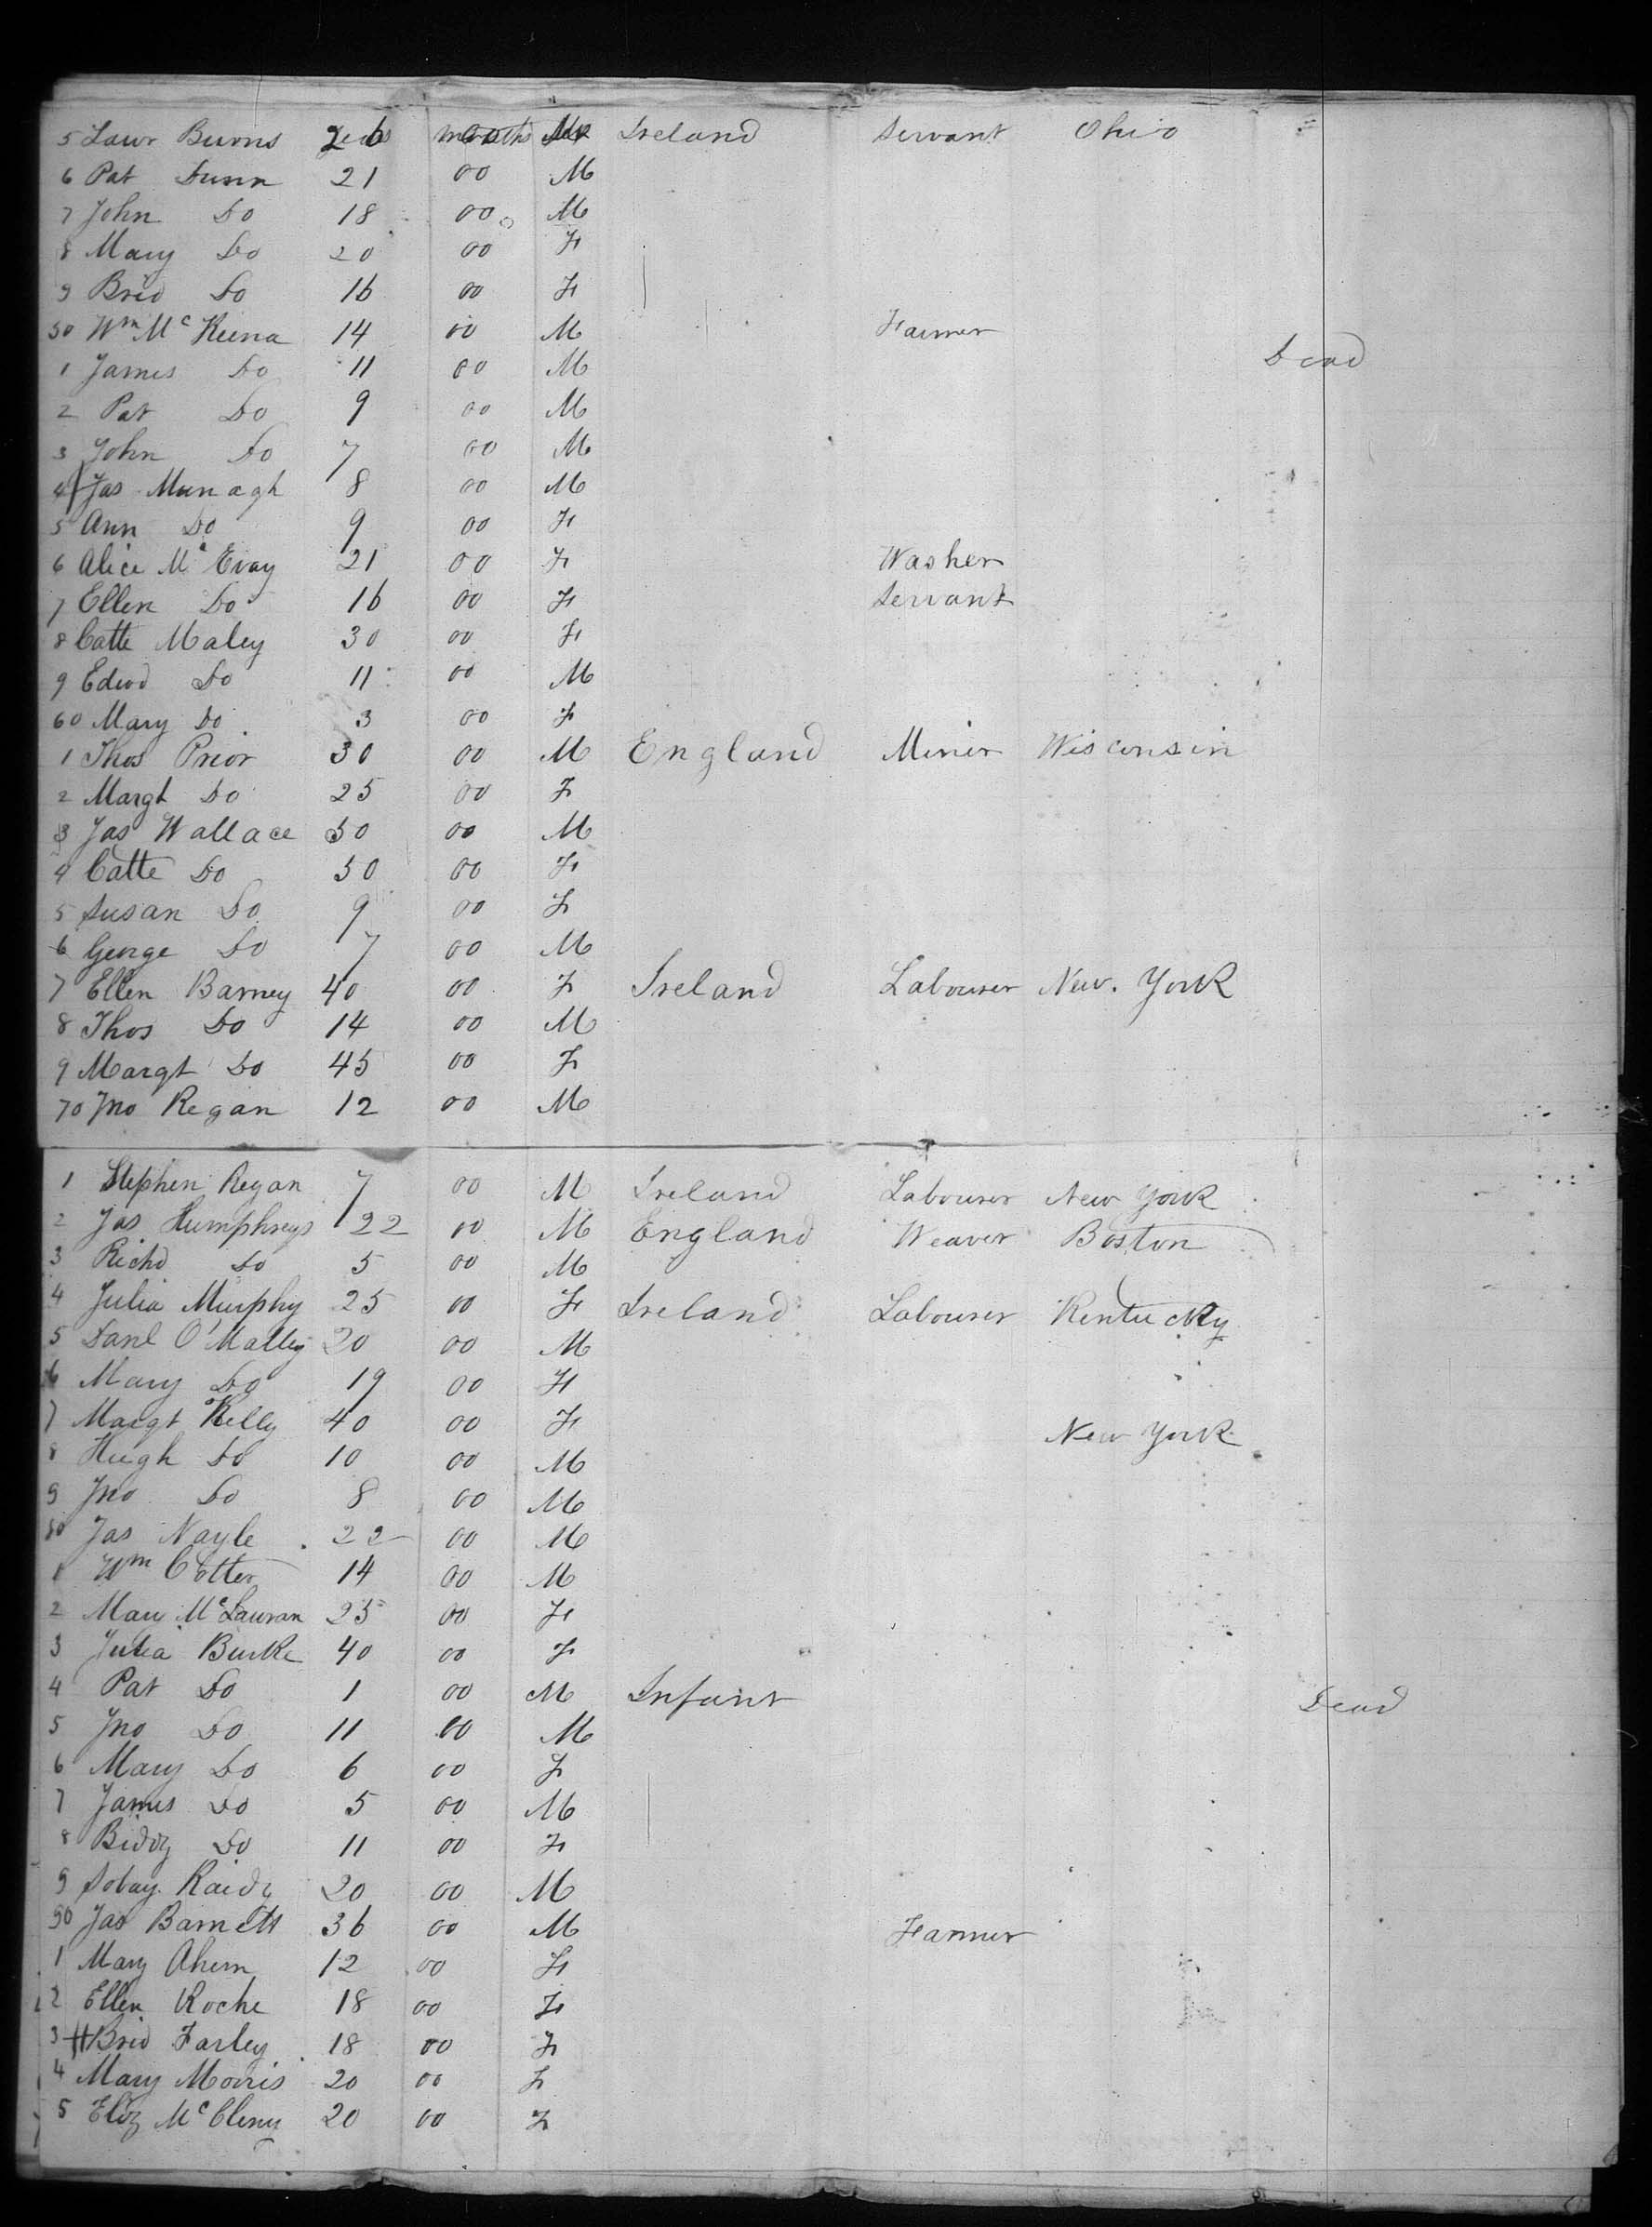 5 Lawr Burns 26 00 M Ireland Servant Ohio
6 Pat Dunn 21 00 M
7 John Do 18 00 M
8 Mary Do 20 00 F
9 Brid Do 16 00 F
50 Wm McKeena 14 00 M Farmer
1 James Do 11 00 M Dead
2 Pat Do 9 00 M
3 John Do 7 00 M
4 Jas Munagh 8 00 M
5 Ann Do 9 00 F
6 Alice McEvay 21 00 F Washer
7 Ellen Do 16 00 F Servant
8 Catte Maley 30 00 F
9 Edwd Do 11 00 M
60 Mary Do 3 00 F
1 Thos Prior 30 00 M England Miner Wisconsin
2 Margt Do 25 00 F
3 Jas Wallace 50 00 M
4 Catte Do 50 00 F
5 Susan Do 9 00 F
6 George Do 7 00 M
7 Ellen Barney 40 00 F Ireland Labourer New York
8 Thos Do 14 00 M
9 Margt Do 45 00 F
70 Jno Regan 12 00 M
1 Stephen Regan 7 00 M Ireland Labourer New York
2 Jas Humphreys 22 00 M England Weaver Boston
3 Richd Do 5 00 M
4 Julia Murphy 25 00 F Ireland Labourer Kentucky
5 Danl O'Malley 20 00 M
6 Mary Do 19 00 F
7 Margt Kelly 40 00 F New York
8 Hugh Do 10 00 M
9 Jno Do 8 00 M
80 Jas Nayle 22 00 M
1 Wm Cotter 14 00 M
2 Mary McLawran 25 00 F
3 Julia Burke 40 00 F
4 Pat Do 1 00 M Infant Dead
5 Jno Do 11 00 M
6 Mary Do 6 00 F
7 James Do 5 00 M
8 Biddy Do 11 00 F
9 Raidy 20 00 M
90 Jas Barnett 36 00 M Farmer
1 Mary Ahern 12 00 F
2 Ellen Roche 18 00 F
3 Brid Farley 18 00 F
4 Mary Morris 20 00 F
5 Eliz McCleny 20 00 F